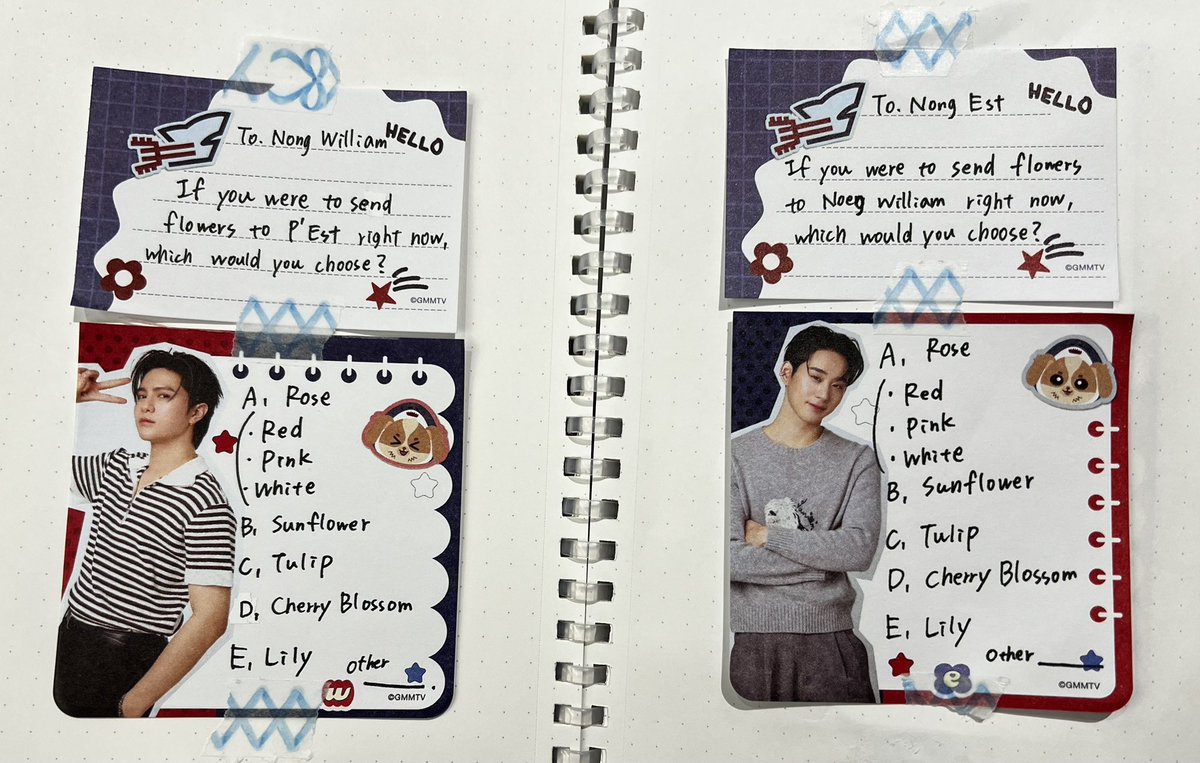 To. Nong William
HELLO
If you were to send
flowers to P'Est right now,
which would you choose?
©GMMTV
A, Rose
· Red
· Pink
· White
B, Sunflower
C, Tulip
D, Cherry Blossom
E, Lily
other ____.
w
©GMMTV
To. Nong Est
HELLO
If you were to send flowers
to Noeg William right now,
which would you choose?
©GMMTV
A, Rose
· Red
· Pink
· White
B, Sunflower
C, Tulip
D, Cherry Blossom
E, Lily
other ____
e
©GMMTV